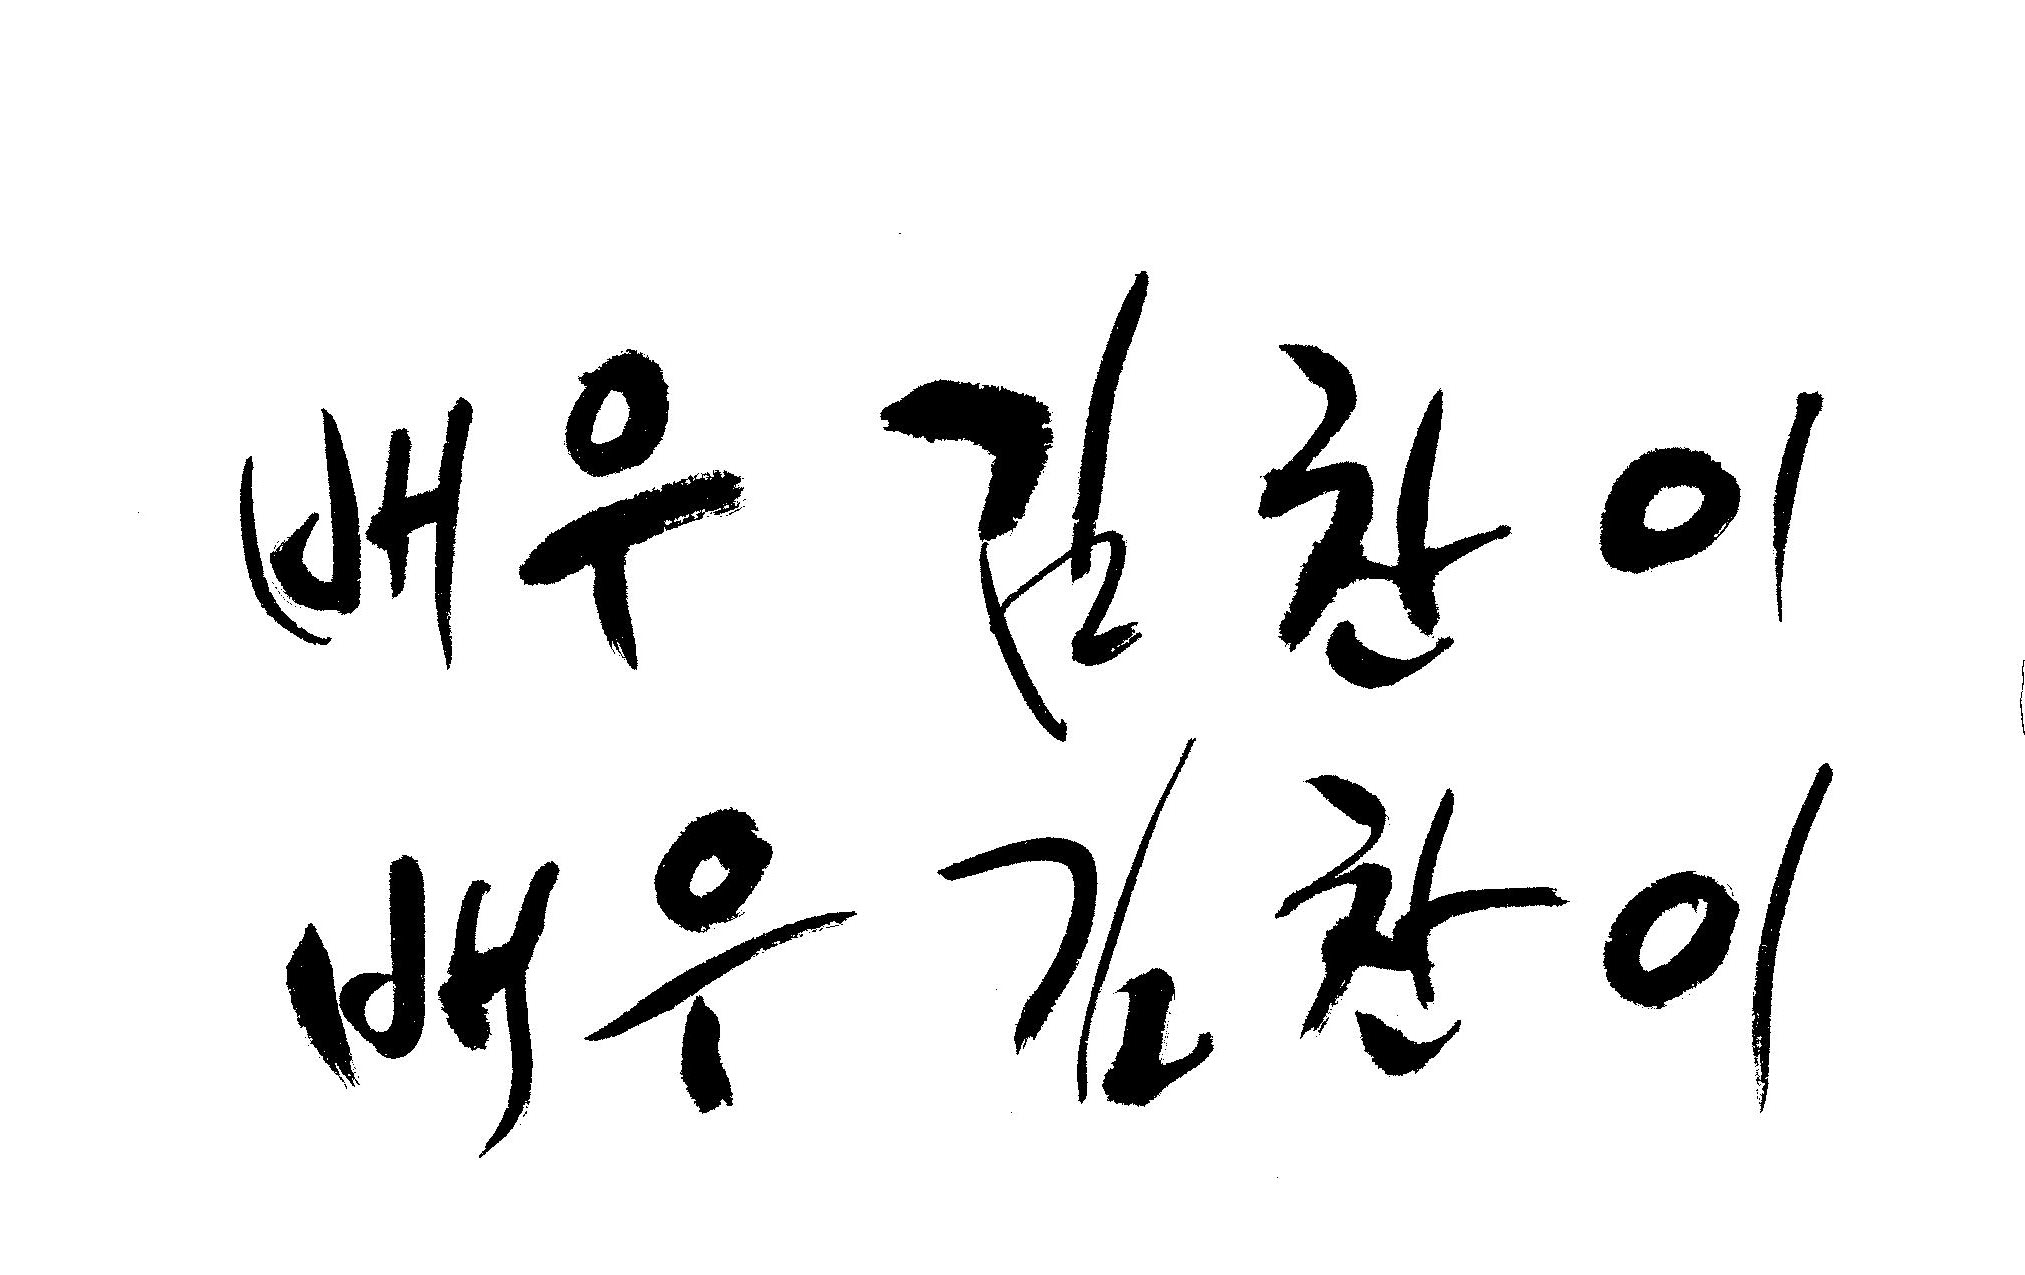 배우 김찬이
배우 김찬이